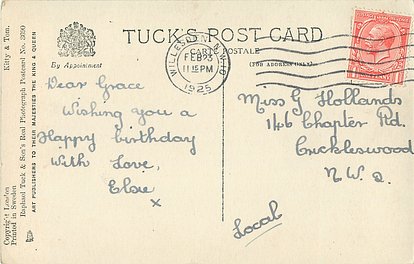 Kitty & Tom.
Copyright London
Printed in Sweden
Raphael Tuck & Son's Real Photograph Postcard No. 3290
ART PUBLISHERS TO THEIR MAJESTIES THE KING & QUEEN
By Appointment
TUCK'S POST CARD
CARTE POSTALE
(FOR ADDRESS ONLY)
WILLESDEN N.W.10
11 15 PM
1925
Dear Grace
Wishing you a
Happy birthday
With Love,
Elsie
x
Miss G Hollands
146 Chapter Rd.
Cricklewood
N.W.2.
Local